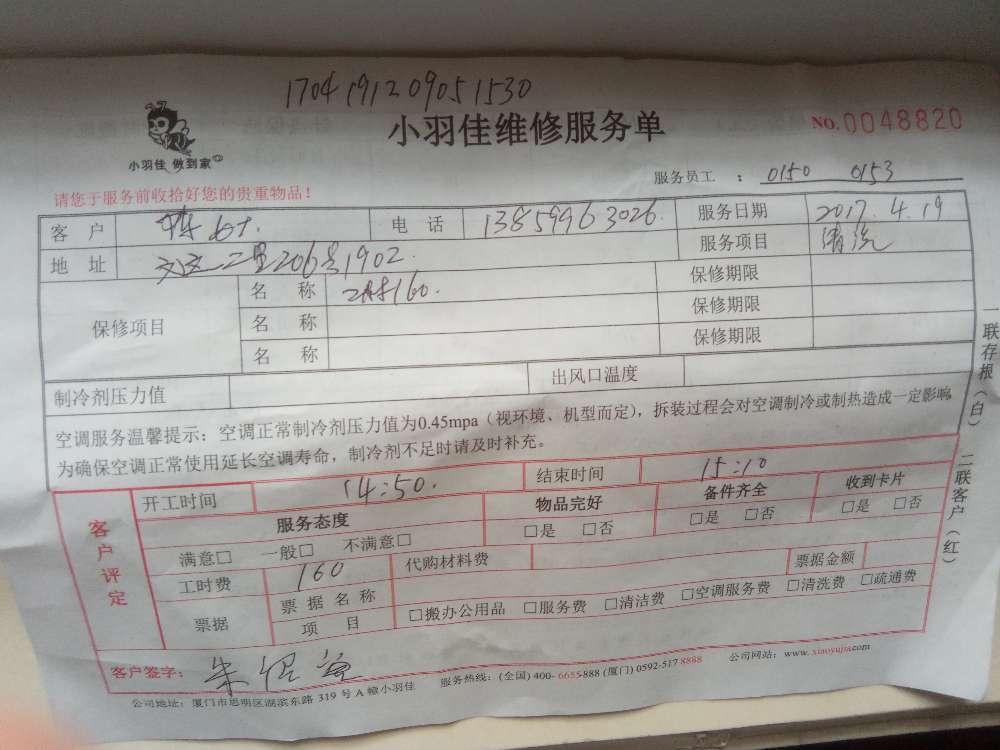 1704191209051530
小羽佳 做到家
小羽佳维修服务单
NO.0048820
服务员工 : 0150 0153
请您于服务前收拾好您的贵重物品!
客 户 电 话 13859963026 服务日期 2017.4.19
地 址 二里206号1902 服务项目 清洗
保修项目 名 称 160. 保修期限
名 称 保修期限
名 称 保修期限
制冷剂压力值 出风口温度
空调服务温馨提示:空调正常制冷剂压力值为0.45mpa(视环境、机型而定),拆装过程会对空调制冷或制热造成一定影响,
为确保空调正常使用延长空调寿命,制冷剂不足时请及时补充。
客户评定 开工时间 14:50. 结束时间 15:10
服务态度 物品完好 备件齐全 收到卡片
满意□ 一般□ 不满意□ □是 □否 □是 □否 □是 □否
工时费 160 代购材料费 票据金额
票据 票据名称
项 目 □搬办公用品 □服务费 □清洁费 □空调服务费 □清洗费 □疏通费
客户签字: 朱
公司地址:厦门市思明区湖滨东路 319 号 A 幢小羽佳 服务热线:(全国) 400-6655-888 (厦门) 0592-5178888 公司网站:www.xiaoyujia.com
一联存根(白) 二联客户(红)